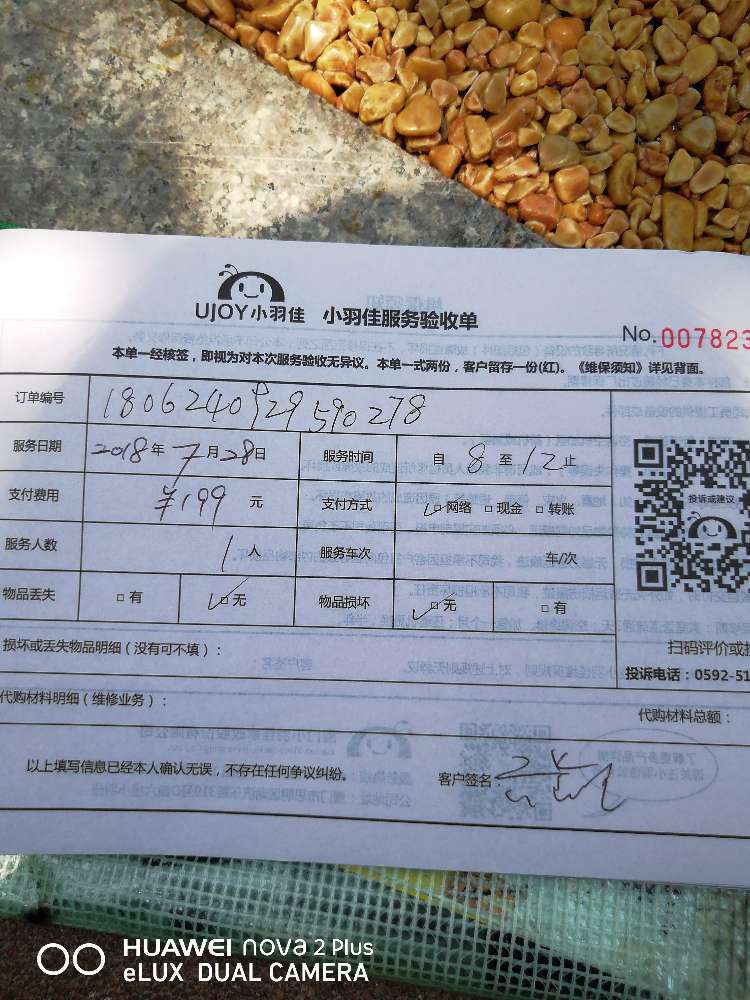 UJOY小羽佳 小羽佳服务验收单
No.007823
本单一经核签，即视为对本次服务验收无异议。本单一式两份，客户留存一份(红)。《维保须知》详见背面。
订单编号 180624092959 0278
服务日期 2018年7月28日 服务时间 自8至12止
支付费用 ¥199元 支付方式 ☑网络 □现金 □转账
服务人数 1人 服务车次 车/次
投诉或建议
物品丢失 □有 ☑无 物品损坏 ☑无 □有
损坏或丢失物品明细（没有可不填）：
扫码评价或投
投诉电话：0592-51
代购材料明细（维修业务）：
代购材料总额：
以上填写信息已经本人确认无误，不存在任何争议纠纷。
客户签名：
HUAWEI nova 2 Plus
eLUX DUAL CAMERA